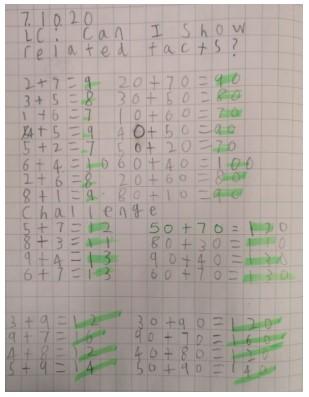 7.10.20
LC: Can I show
related facts?
2+7=9 20+70=90
3+5=8 30+50=80
1+6=7 10+60=70
4+5=9 40+50=90
5+2=7 50+20=70
6+4=10 60+40=100
2+6=8 20+60=80
8+1=9 80+10=90
Challenge
5+7=12 50+70=120
8+3=11 80+30=110
9+4=13 90+40=130
6+7=13 60+70=130
3+9=12 30+90=120
9+7=16 90+70=160
4+8=12 40+80=120
5+9=14 50+90=140